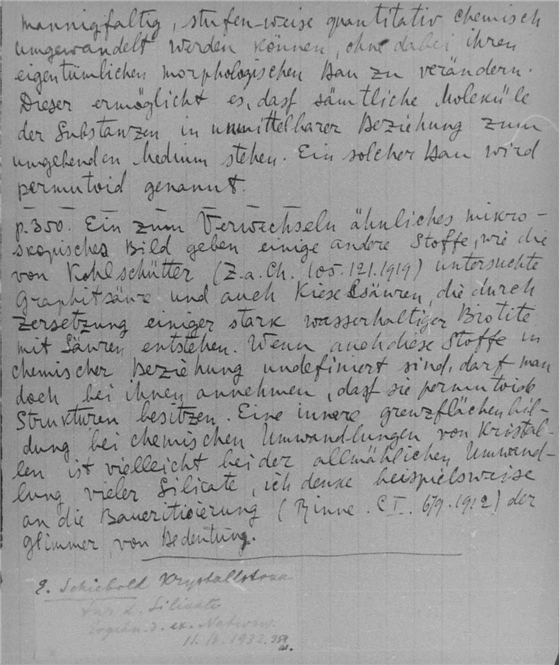 mannigfaltig, stufen-weise quantitativ chemisch
umgewandelt werden können, ohne dabei ihren
eigentümlichen morphologischen Bau zu verändern.
Dieser ermöglicht es, dasf sämtliche Moleküle
der Substanzen in unmittelbarer Beziehung zum
umgebenden Medium stehen. Ein solcher Bau wird
permutoid genannt.
p.350. Ein zum Verwechseln ähnliches mikro-
skopisches Bild geben einige andre Stoffe, wie die
von Kohlschütter (Z.a.Ch. 105.121.1919) untersuchte
Graphitsäure und auch Kieselsäuren, die durch
Zersetzung einiger stark wasserhaltiger Biotite
mit Säuren entstehen. Wenn auch diese Stoffe in
chemischer Beziehung undefiniert sind, darf man
doch bei ihnen annehmen, dasf sie permutoide
Strukturen besitzen. Eine innere grenzflächenbil-
dung bei chemischen Umwandlungen von Kristal-
len ist vielleicht bei der allmählichen Umwand-
lung vieler Silicate, ich denke beispielsweise
an die Baueritisierung (Rinne. C.I. 679.1912) der
glimmer, von Bedeutung.
E. Schiebold Krystallstruk
d. Silicate
Ergebn. d. ex. Naturw.
11. 1932.